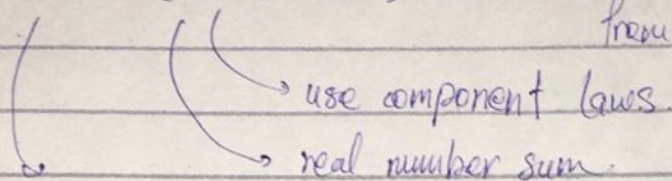 from
use component laws
real number sum.